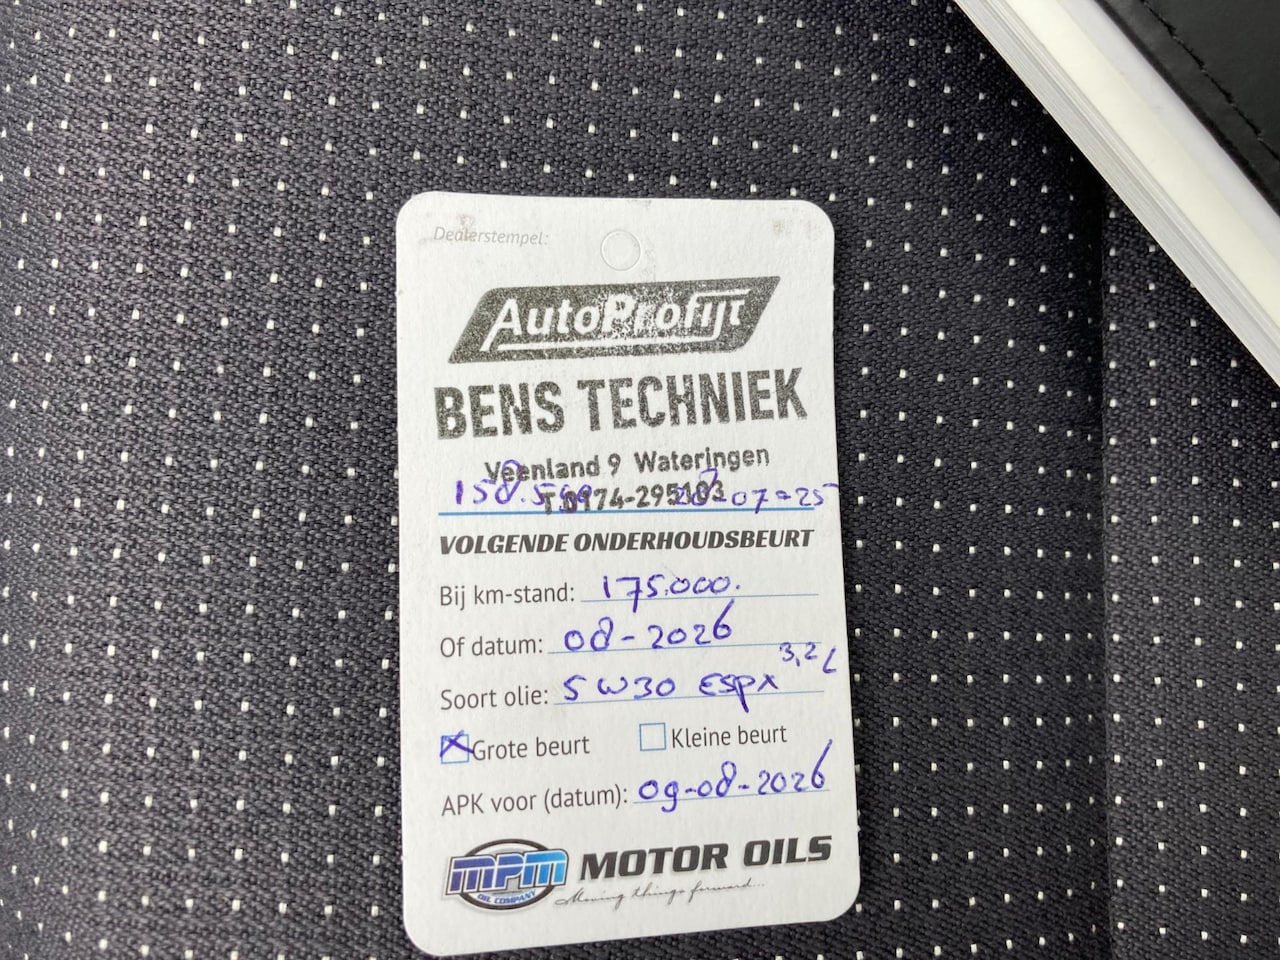 Dealerstempel:
AutoProfijt
BENS TECHNIEK
Veenland 9 Wateringen
T 0174-295103
-07-25
VOLGENDE ONDERHOUDSBEURT
Bij km-stand: 175.000.
Of datum: 08-2026
Soort olie: 5W30 ESPX 3,2 L
Grote beurt Kleine beurt
APK voor (datum): 09-08-2026
MPM MOTOR OILS
OIL COMPANY Moving things forward...